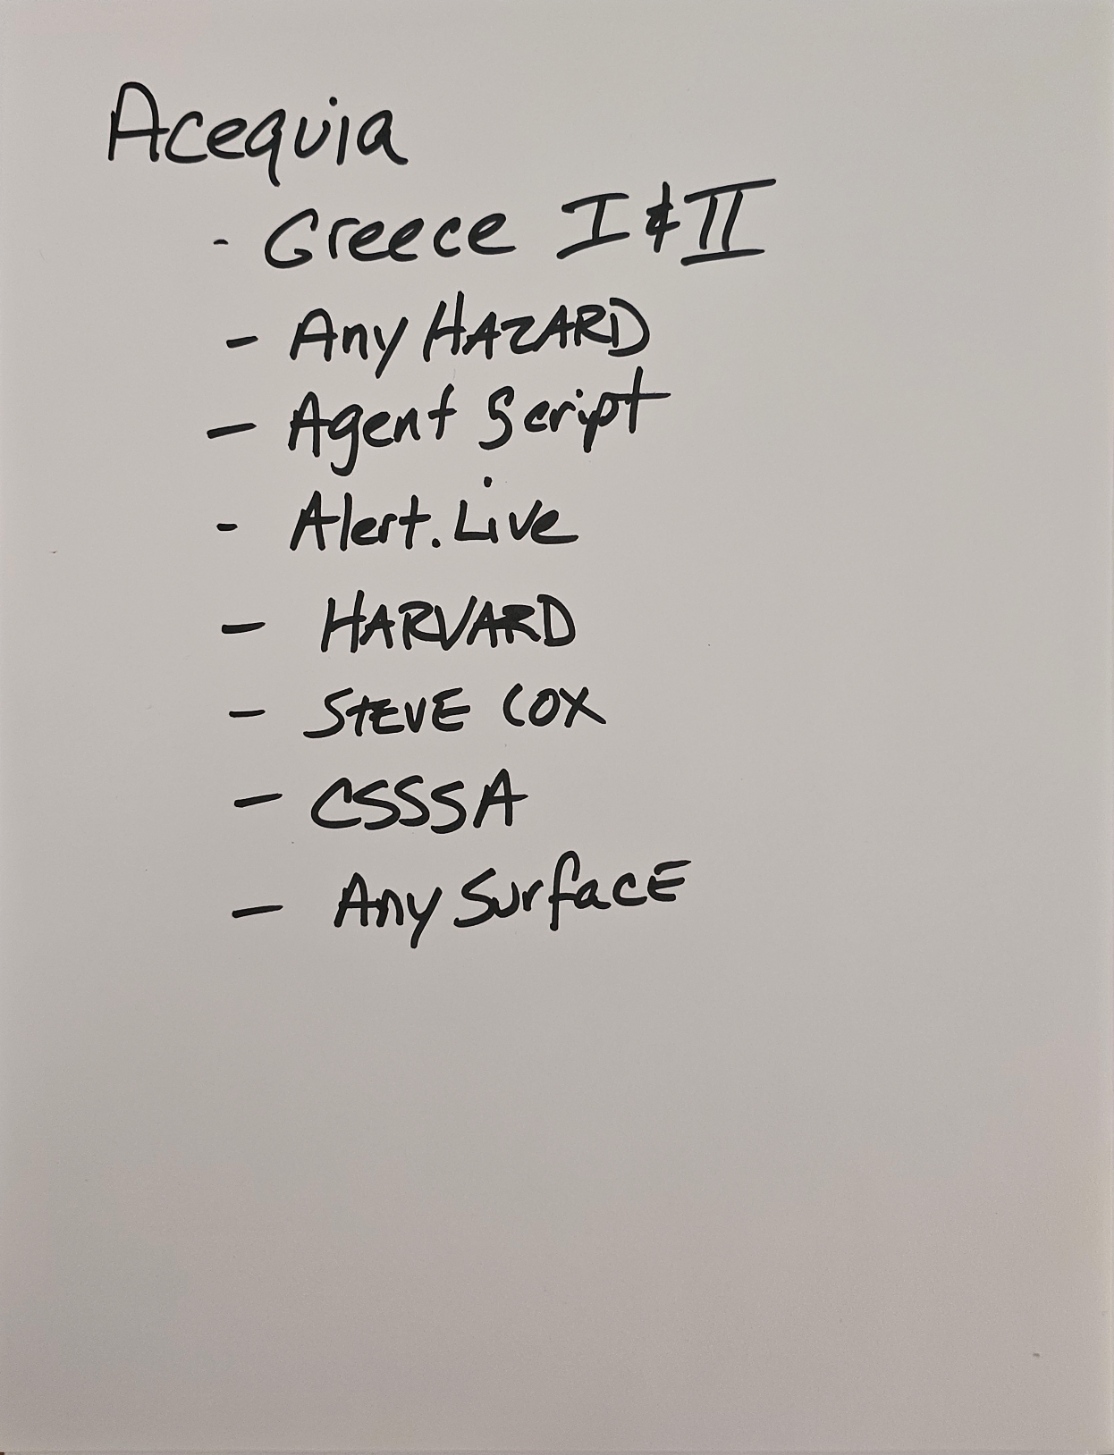 Acequia
- Greece I & II
- Any HAZARD
- Agent Script
- Alert.Live
- HARVARD
- STEVE COX
- CSSSA
- Any SurfacE